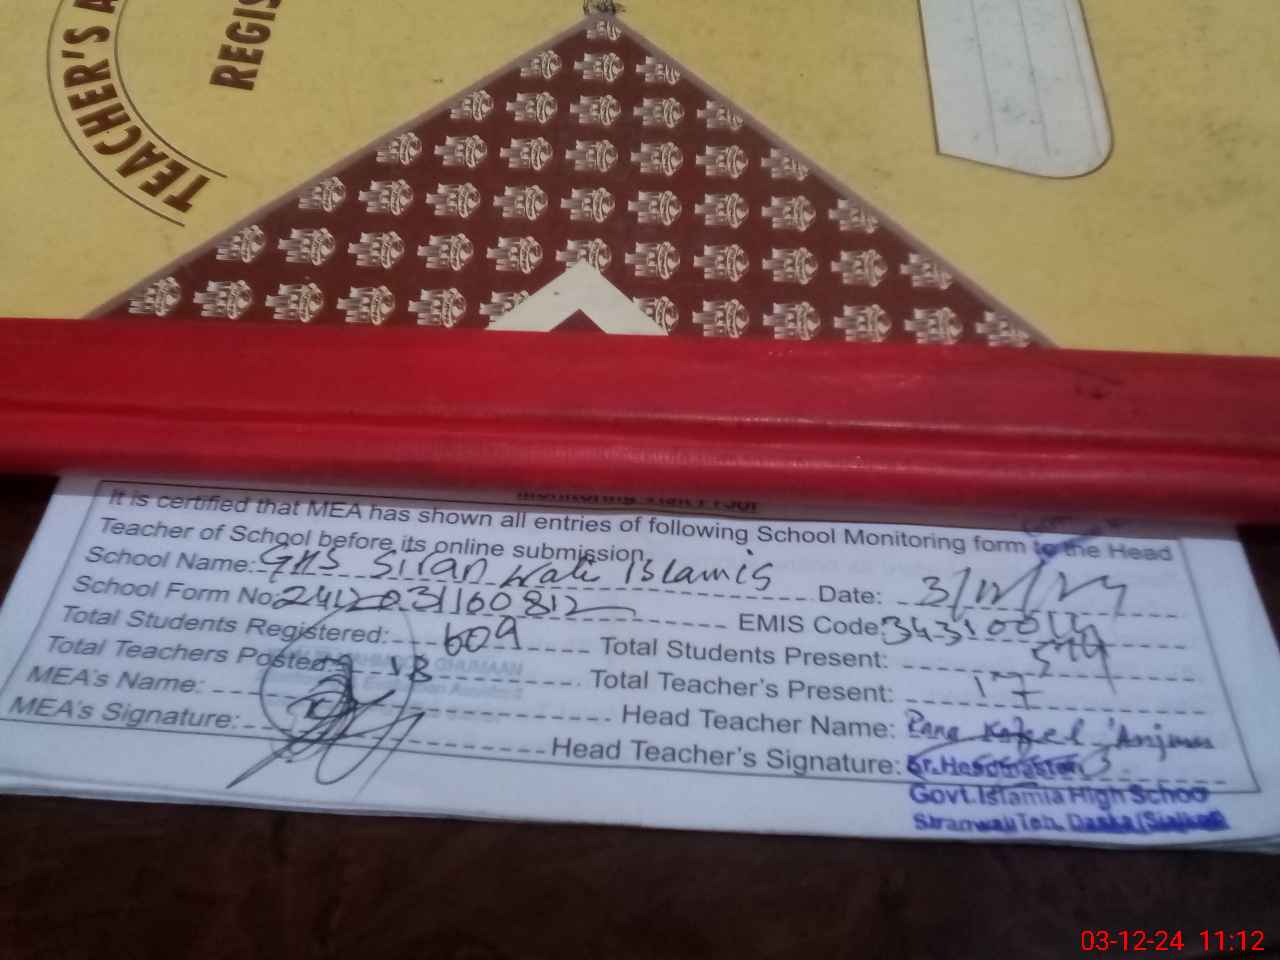 TEACHER'S A
REGIS
It is certified that MEA has shown all entries of following School Monitoring form to the Head
Teacher of School before its online submission.
School Name: GHS Siran wali Islamia Date: 3/12/24
School Form No. 2412031160812 EMIS Code:
Total Students Registered: 609 Total Students Present:
Total Teachers Posted: 18 Total Teacher's Present: 17
MEA's Name: Head Teacher Name: Rana Kafeel Anjum
MEA's Signature: Head Teacher's Signature:
Sr. Headmaster
Govt. Islamia High Schoo
Siranwali Teh. Daska (Sialkot)
03-12-24 11:12